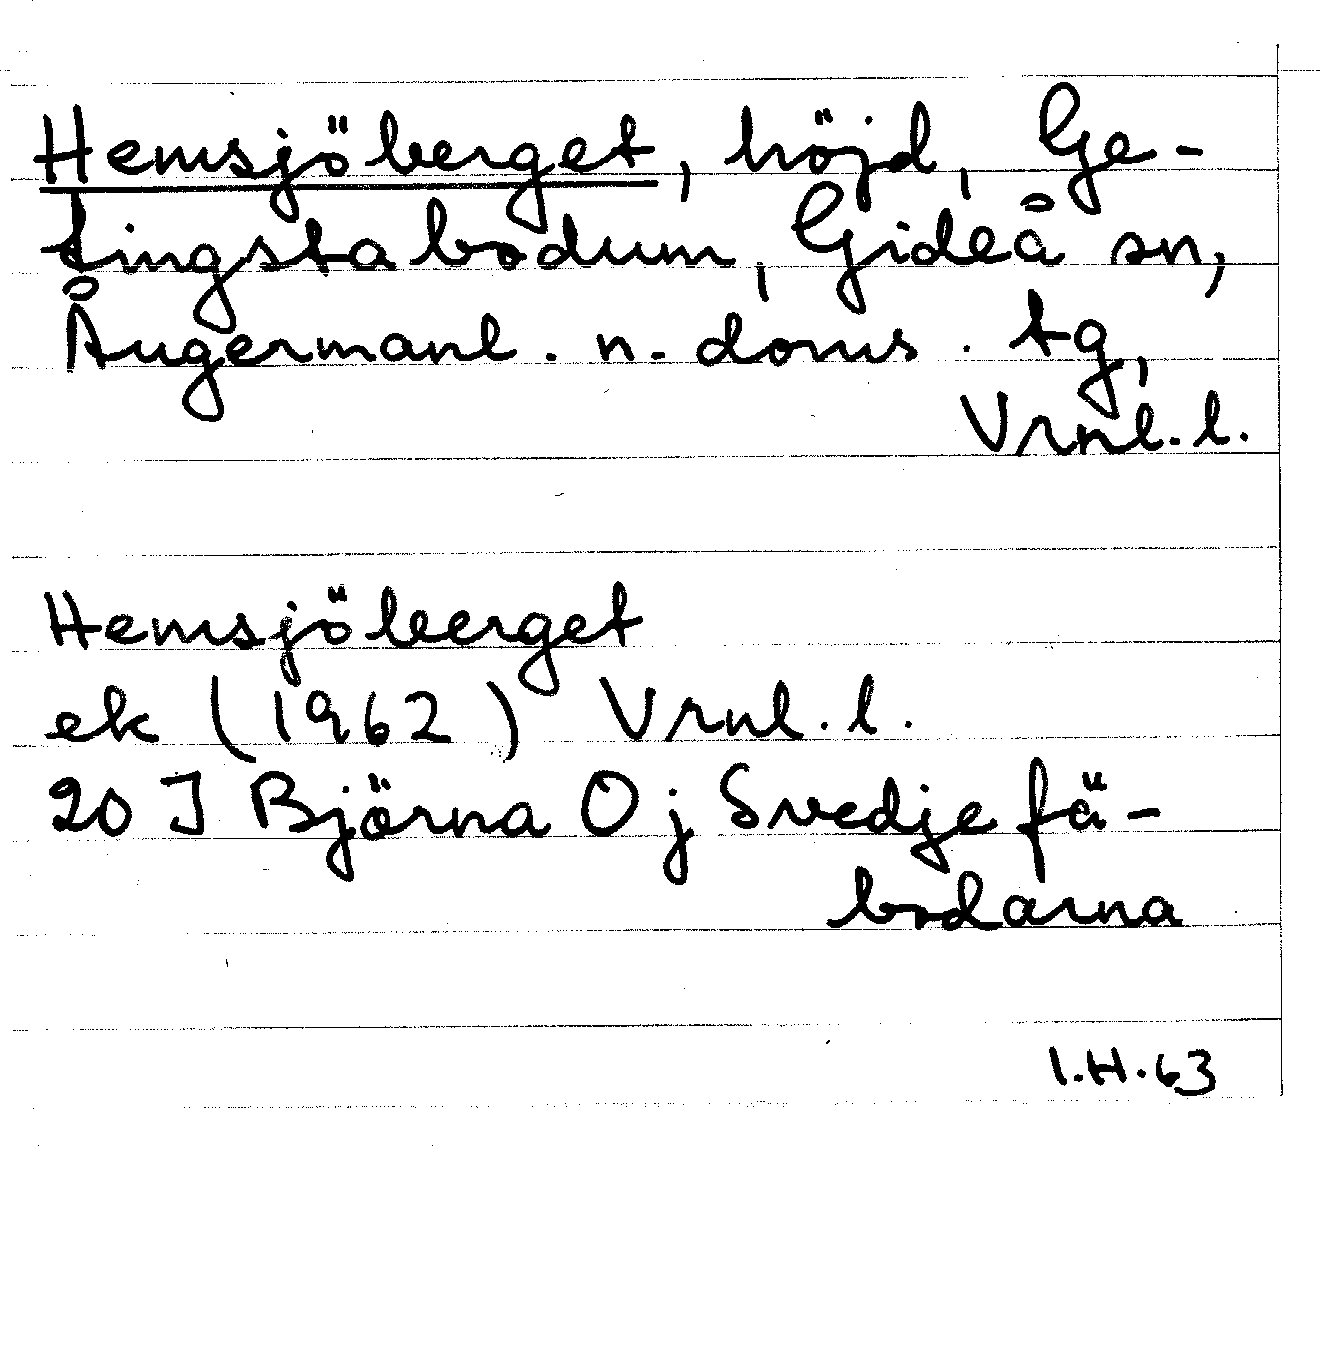 Hemsjöberget, höjd, Ge-
tingstabodum, Gideå sn,
Ångermanl. n. doms. tg,
Vrnl. l.
Hemsjöberget
ek (1962) Vrnl. l.
20 J Björna O j Svedjefä-
bodarna
I.H.63